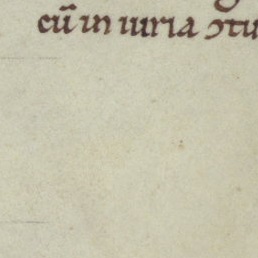 cū in iuria ɔtu